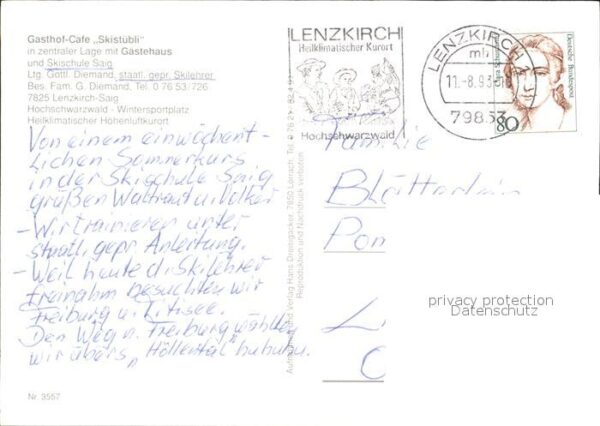 Gasthof-Cafe „Skistübli"
in zentraler Lage mit Gästehaus
und Skischule Saig
Ltg. Gottl. Diemand, staatl. gepr. Skilehrer
Bes. Fam. G. Diemand, Tel. 0 76 53 / 726
7825 Lenzkirch-Saig
Hochschwarzwald - Wintersportplatz
Heilklimatischer Höhenluftkurort
Von einem einwöchent-
lichen Sommerkurs
in der Skischule Saig
grüßen Waltraut u. Volker
- Wir trainieren unter
staatl. gepr. Anleitung.
- Weil heute d. Skilehrer
freinahm besuchten wir
Freiburg u. Titisee.
Den Weg n. Freiburg wählten
wir übers „Höllental" huhuhu.
Nr. 3557
Aufnahme und Verlag Hans Dreingacker, 7850 Lörrach, Tel. 0 76 21
Reproduktion und Nachdruck verboten
LENZKIRCH
Heilklimatischer Kurort
Hochschwarzwald
LENZKIRCH 1
mb
11.-8.93
79853
Deutsche Bundespost
80
Familie
Pon
L
C
privacy protection
Datenschutz